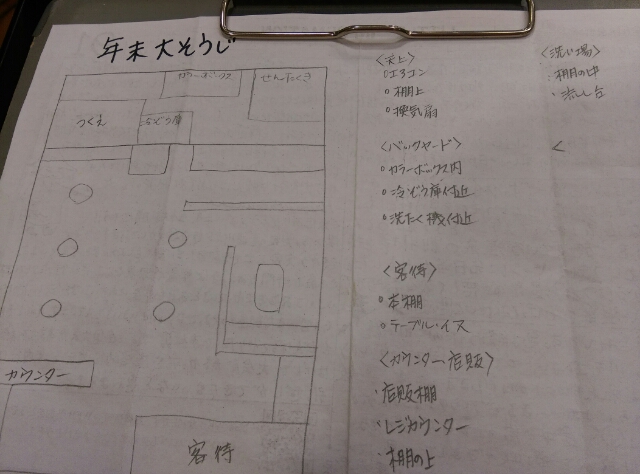 年末大そうじ
カラーボックス
せんたくき
つくえ
冷ぞう庫
カウンター
客待
<天上>
○エアコン
○棚上
○換気扇
<バックヤード>
○カラーボックス内
○冷ぞう庫付近
○洗たく機付近
<客待>
○本棚
○テーブル・イス
<カウンター店販>
・店販棚
・レジカウンター
・棚の上
<洗い場>
・棚の中
・流し台
<